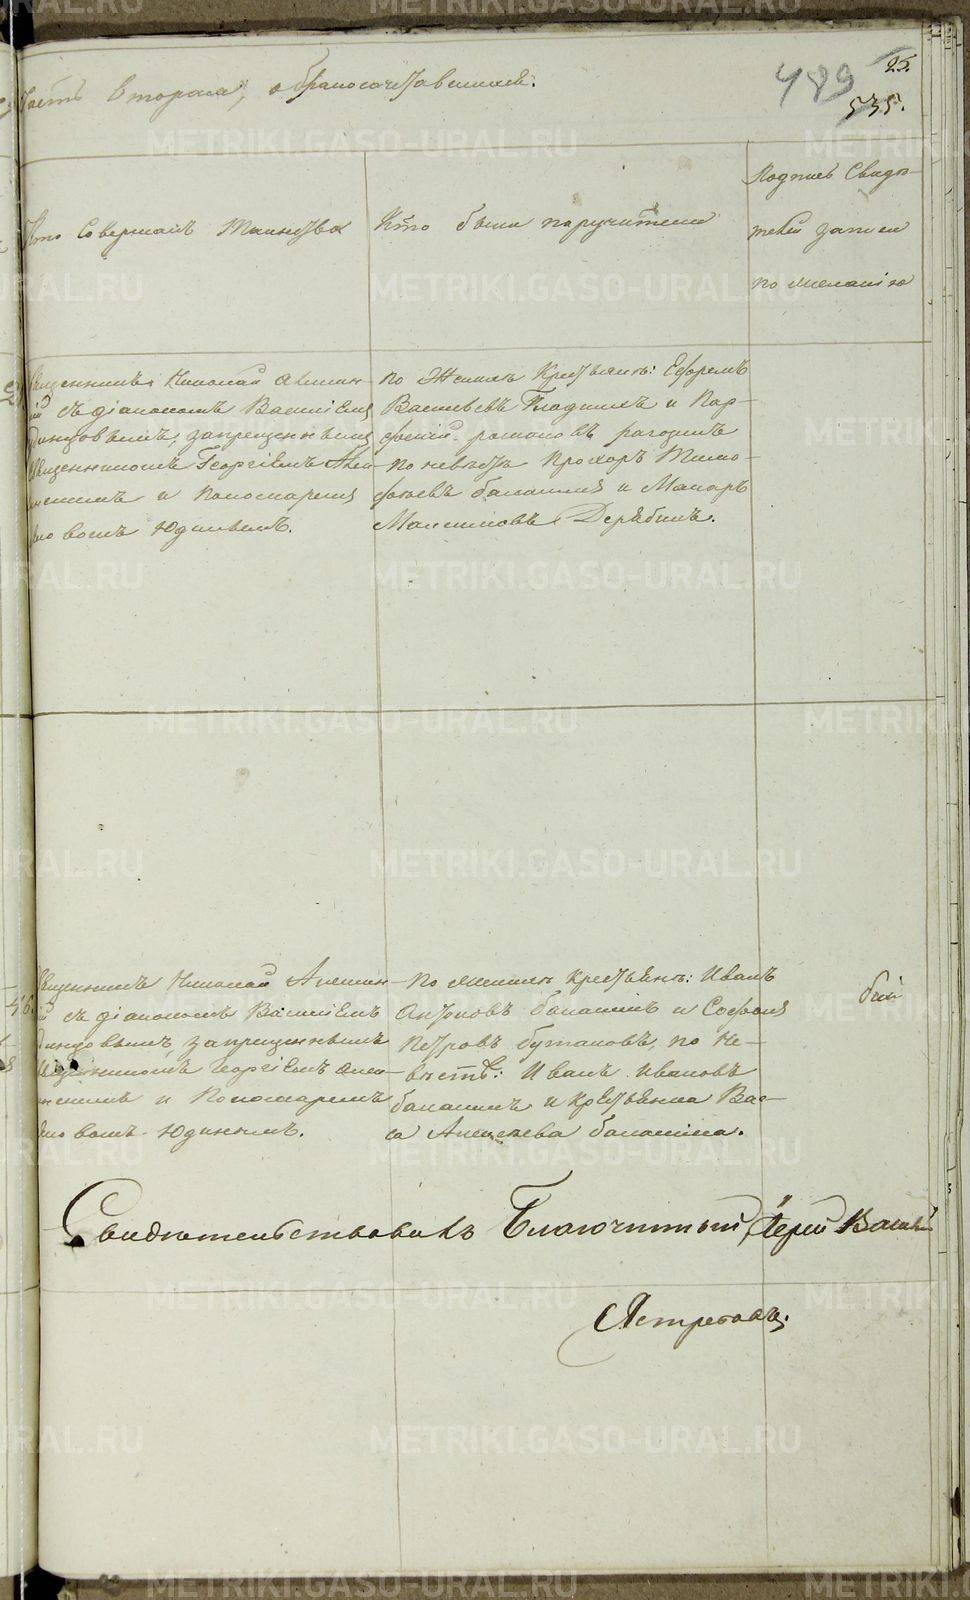 Часть вторая, о бракосочетавшихся.
489
25.
535.
Кто совершалъ таинство
Кто были поручители
Подпись свиде-
телей записи
по желанію
Священникъ Николай
съ діакономъ Василіемъ
запрещеннымъ
Священникомъ Георгіемъ
и пономаремъ
Юдинымъ.
По женихѣ крестьянъ: Ефремъ
Васильевъ Гладкихъ и Пар-
феній рагозинъ
по невѣстѣ Прохоръ Тимо-
феевъ балакинъ и Макаръ
Максимовъ Дерябинъ.
Священникъ Николай
съ діакономъ Василіемъ
запрещеннымъ
Священникомъ Георгіемъ
и Пономаремъ
Юдинымъ.
По женихѣ крестьянъ: Иванъ
Антоновъ балакинъ и Софонъ
Петровъ бутаковъ, по не-
вѣстѣ: Иванъ Ивановъ
балакинъ и крестьянка Вас-
са Алексѣева балакина.
Свидѣтельствовалъ Благочинный Іерей Василій
Ястребовъ.
METRIKI.GASO-URAL.RU